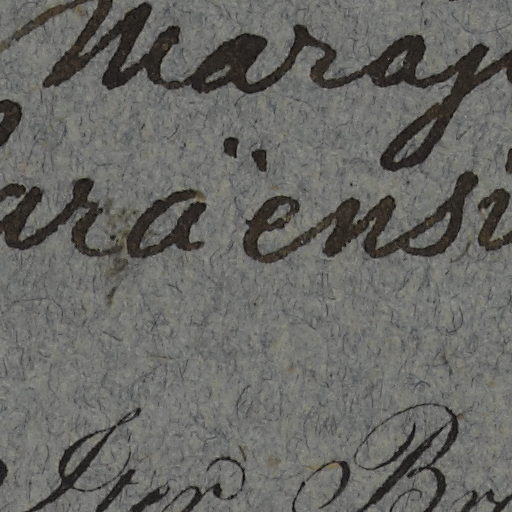 Maraj
araënsi
Iter Br